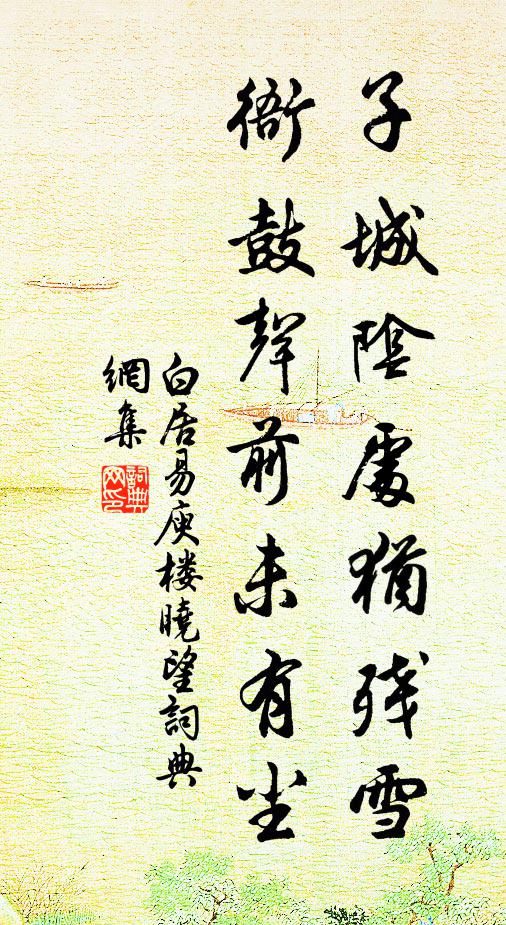 子城陰處猶残雪
衙鼓聲前未有尘
白居易庾楼曉望詞典
網集
詞典
网印